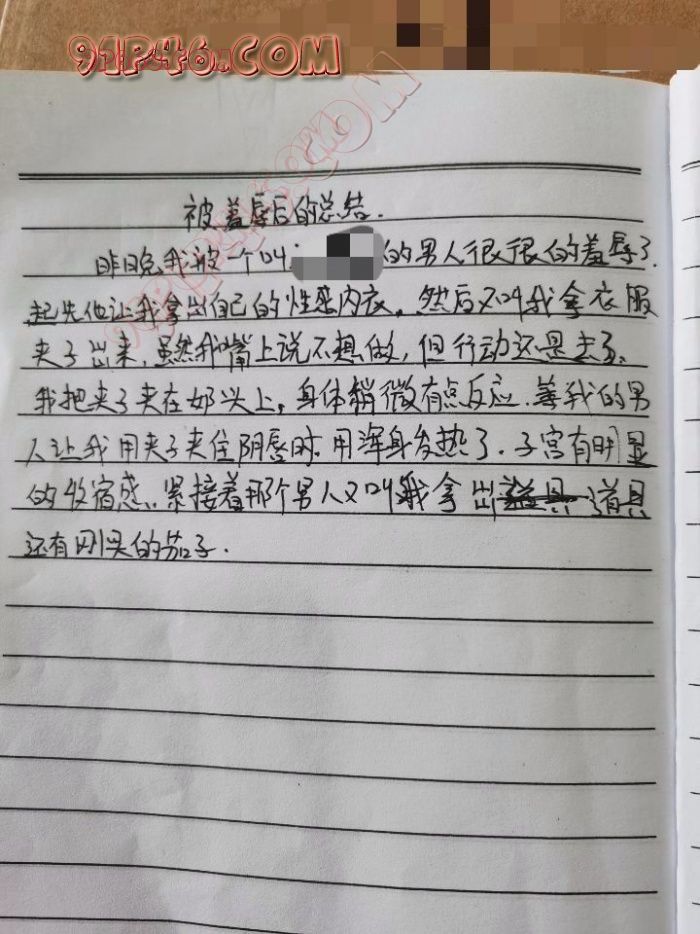 91P46.COM
91P46.COM
被羞辱后的总结.
昨晚我被一个叫 的男人很很的羞辱了.
起先他让我拿出自己的性感内衣，然后又叫我拿衣服
夹子出来，虽然我嘴上说不想做，但行动还是去了、
我把夹子夹在奶头上，身体稍微有点反应. 羞我的男
人让我用夹子夹住阴唇时. 用浑身发热了. 子宫有明显
的收宿感. 紧接着那个男人又叫我拿出道具
还有刚买的茄子.